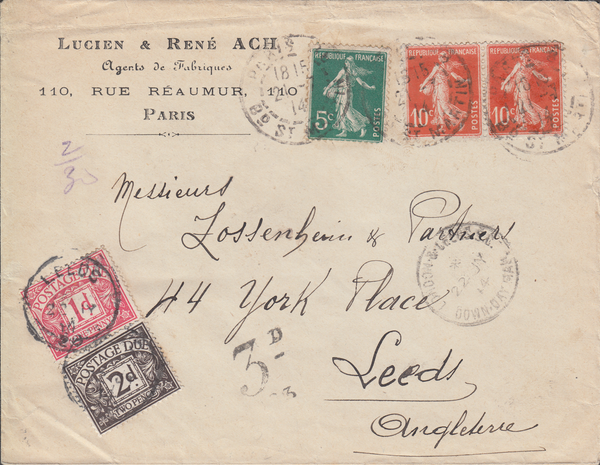 LUCIEN & RENÉ ACH
Agents de Fabriques
110, RUE RÉAUMUR, 110
PARIS
2/30
REPUBLIQUE FRANÇAISE
5c
POSTES
REPUBLIQUE FRANÇAISE
10c
POSTES
REPUBLIQUE FRANÇAISE
10c
POSTES
PARIS
18 15
Bd ST
Messieurs
Zossenheim & Partners
44 York Place
Leeds
Angleterre
22 JY
14
DOWN-DAY-MAIL
LEEDS
POSTAGE DUE
1d
ONE PENNY
POSTAGE DUE
2d
TWO PENCE
3D